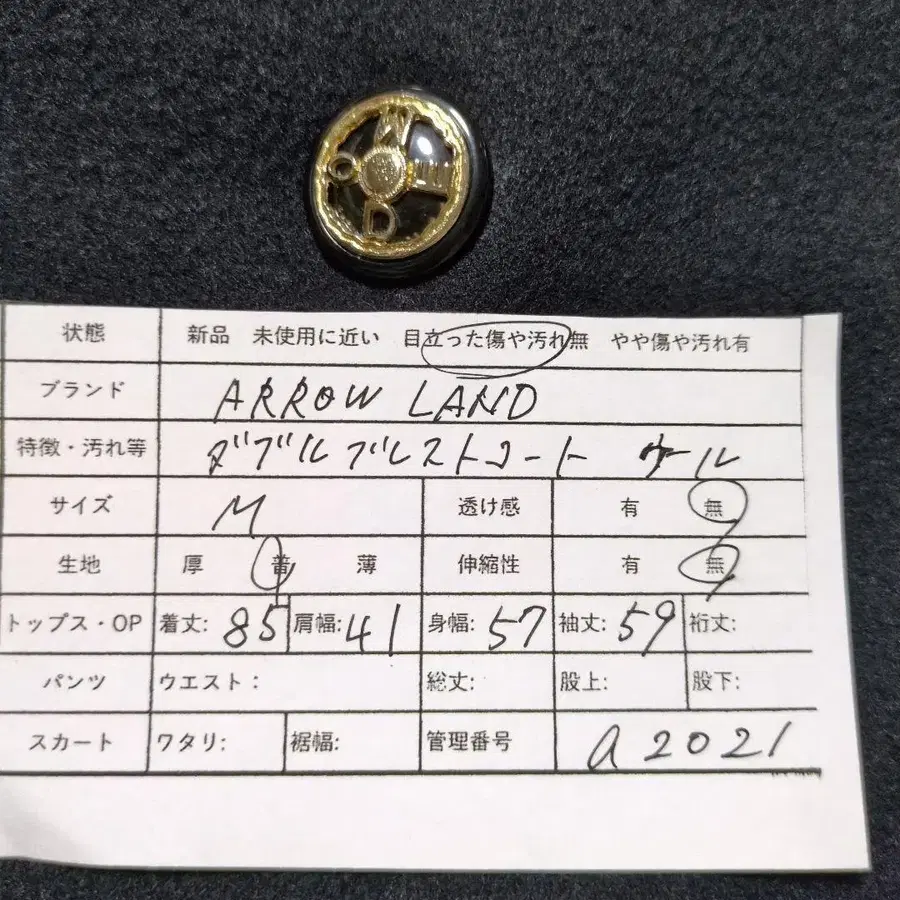 状態 新品 未使用に近い 目立った傷や汚れ無 やや傷や汚れ有
ブランド ARROW LAND
特徴・汚れ等 ダブルブレストコート ウール
サイズ M 透け感 有 無
生地 厚 普 薄 伸縮性 有 無
トップス・OP 着丈: 85 肩幅: 41 身幅: 57 袖丈: 59 裄丈:
パンツ ウエスト: 総丈: 股上: 股下:
スカート ワタリ: 裾幅: 管理番号 a 2021